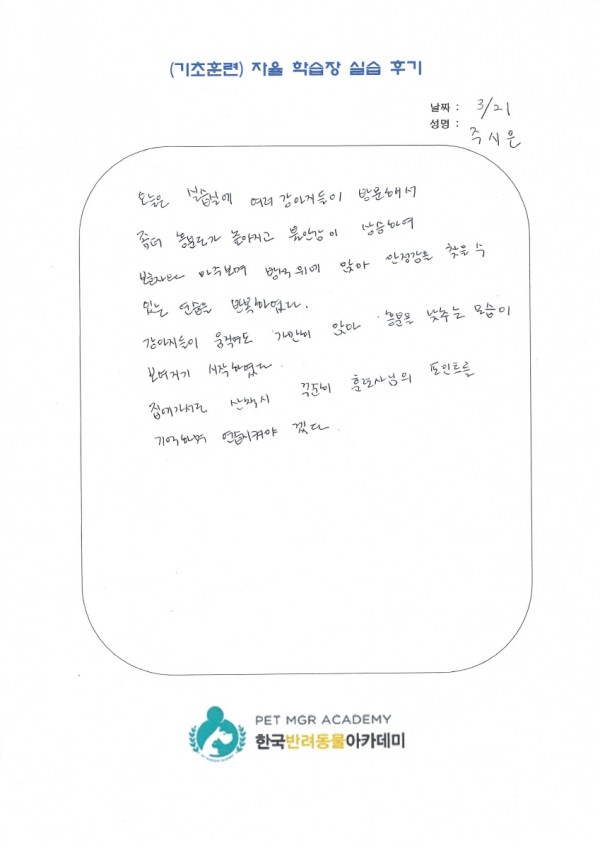 (기초훈련) 자율 학습장 실습 후기
날짜 : 3/21
성명 : 주시은
오늘은 실습실에 여러 강아지들이 방문해서
좀더 흥분도가 높아지고 불안감이 상승하여
보호자와 마주보며 방석위에 앉아 안정감을 찾을 수
있는 연습을 반복하였다.
강아지들이 움직여도 가만히 앉아 흥분을 낮추는 모습이
보여지기 시작하였다.
집에가서도 산책시 꾸준히 훈련사님의 포인트를
기억하며 연습시켜야 겠다.
PET MGR ACADEMY
한국반려동물아카데미